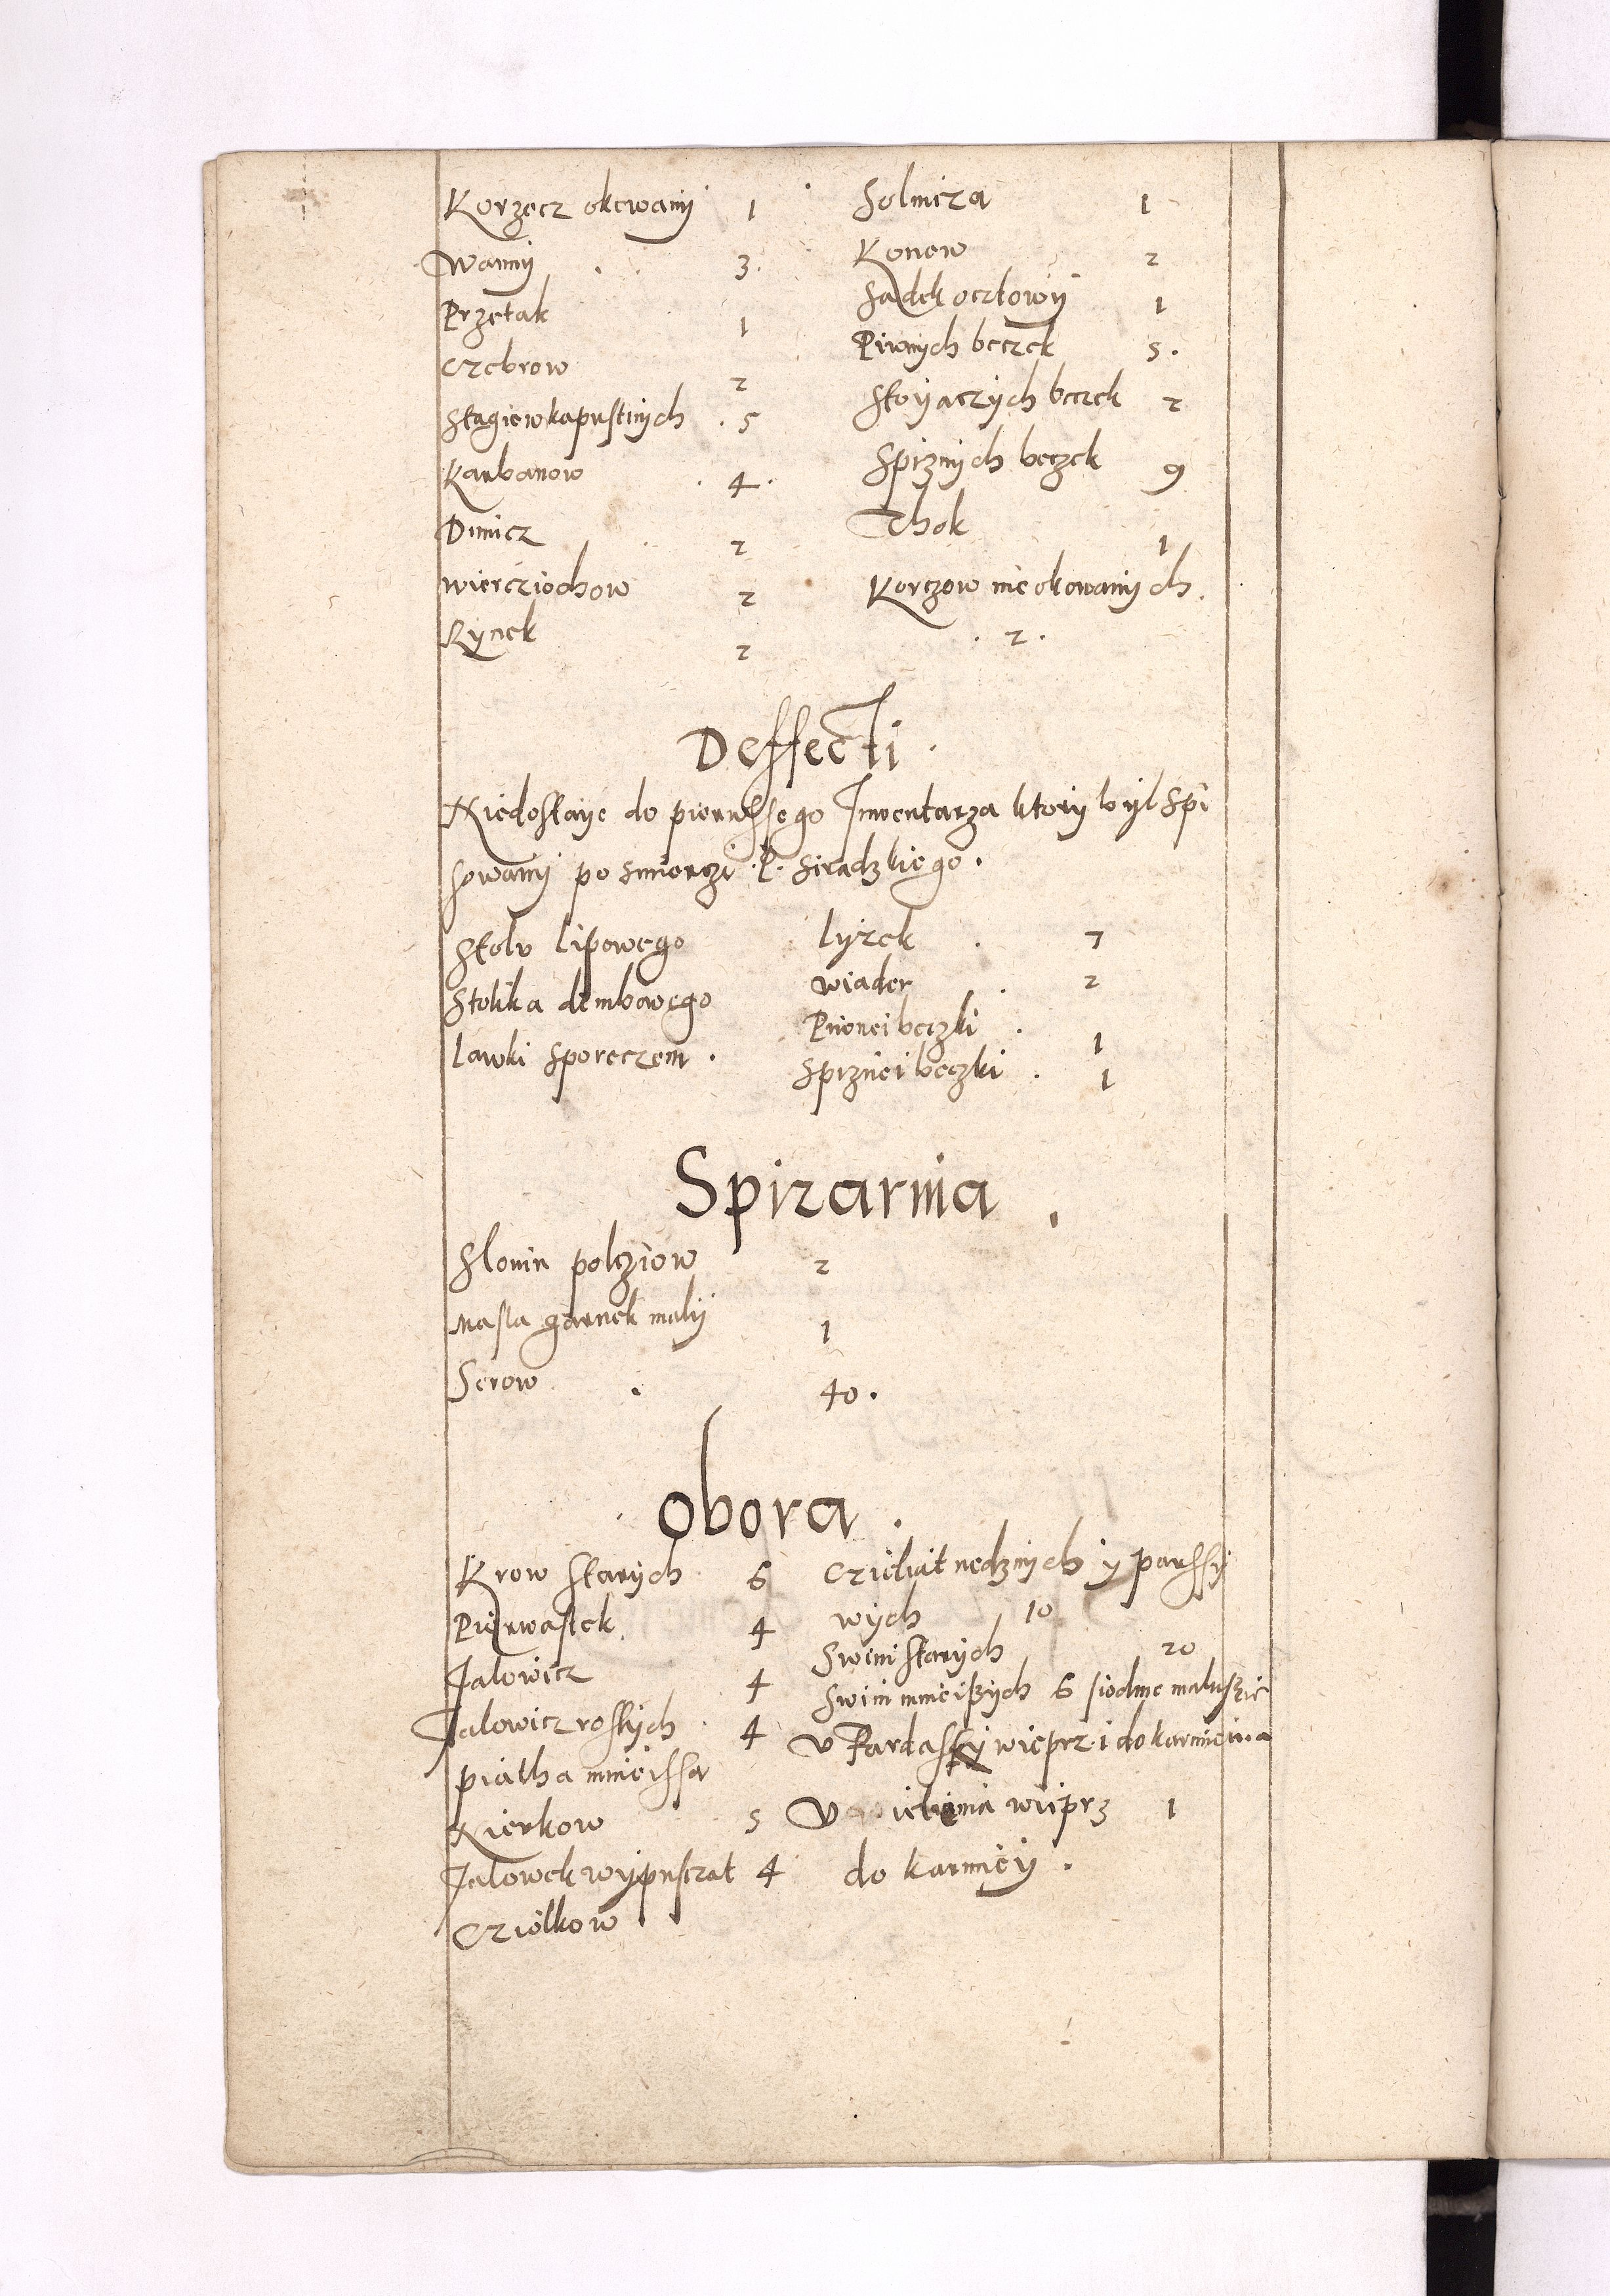 Korzecz okowany 1
Wanny 3.
Przetak 1
Czebrow 2
Stagiew kapustnych 5
Karbanow 4.
Dunicz 2
Wiercziochow 2
Rynek 2
Solnicza 1
Konew 2
Sadek ocztowy 1
Piwnych beczek 5.
Stoyaczych beczek 2
Spiznych beczek 9
Thok 1
Korczow nie okowanych
. 2 .
Deffecti
Niedostaye do pierwssego Inwentarza ktory byl spi
sowany po smierczi P. Siradzkiego.
Stolu lipowego
Stolika dembowego
Lawki sporeczem .
lyzek . 7
wiader . 2
Piwnei beczki . 1
Spiznei beczki . 1
Spizarnia .
Slonin polcziow 2
Masla garnek maly 1
Serow . 40.
Obora .
Krow starych 6
Pierwastek 4
Jalowicz 4
Jalowicz roslych 4
piatha mnieissa
Nierkow 5
Jalowek wypusczat 4
Cziolkow
Czieliat nedznych y parssy
wych 10
Swini starych 20
Swini mnieiszych 6 siodme maluszie
U wieprz 1 do karmienia
U wieprz 1
do karmiey .